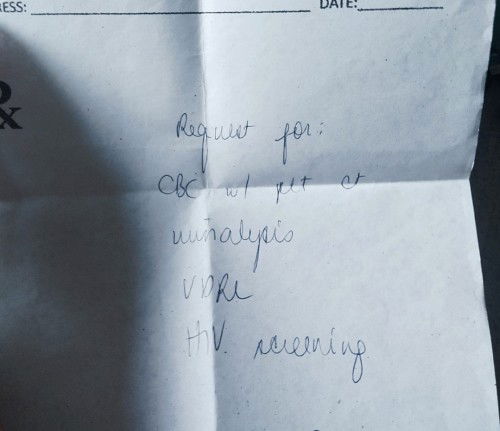 RESS: DATE:
Rx
Request for:
CBC w/ plt ct
urinalysis
VDRL
HIV. screening